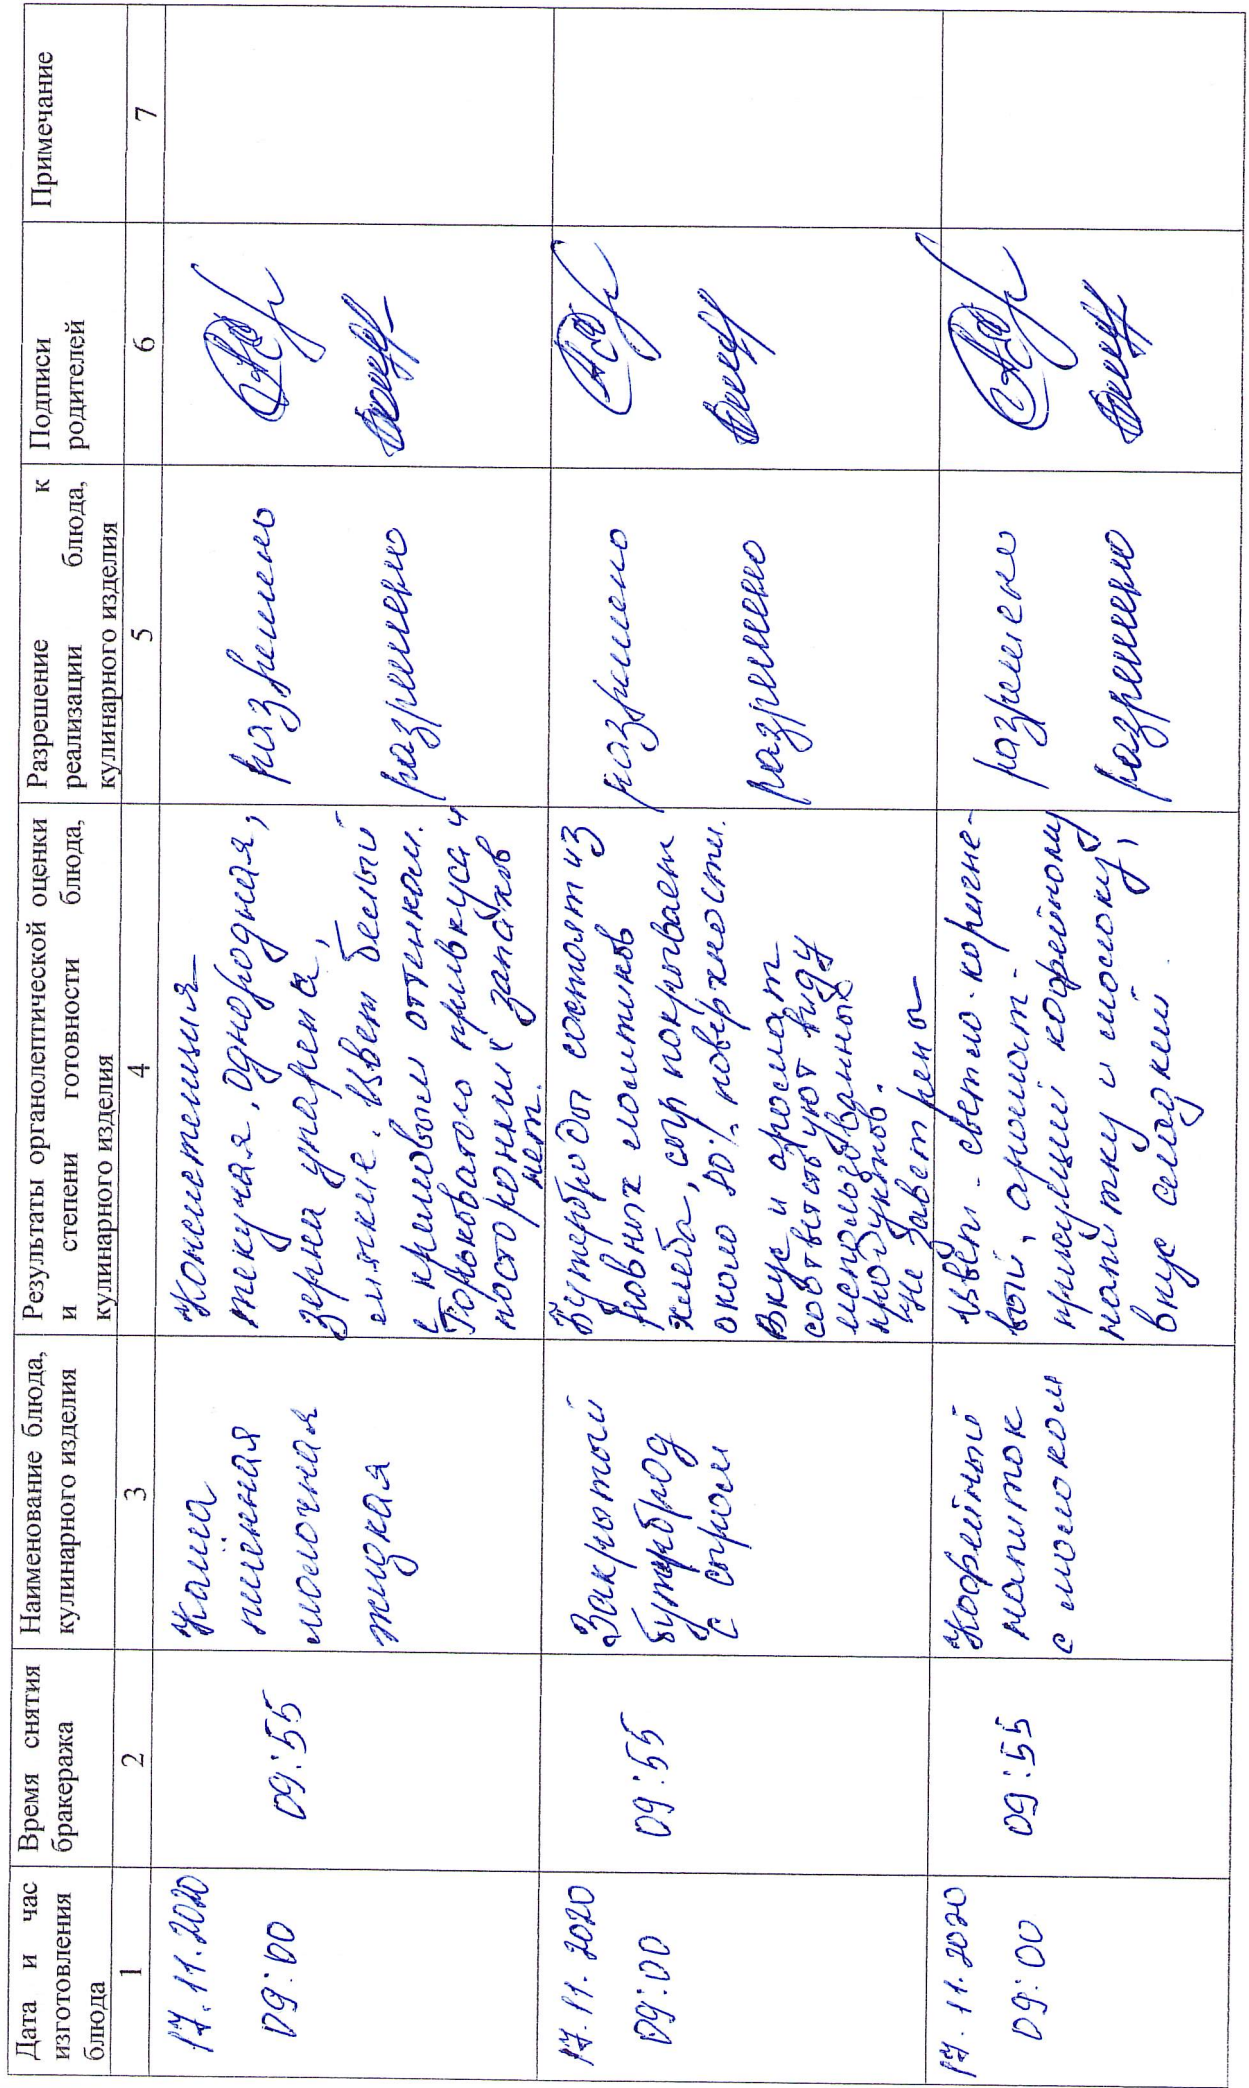 Дата и час
изготовления
блюда
Время снятия
бракеража
Наименование блюда,
кулинарного изделия
Результаты органолептической оценки
и степени готовности блюда,
кулинарного изделия
Разрешение к
реализации блюда,
кулинарного изделия
Подписи
родителей
Примечание
1
2
3
4
5
6
7
17.11.2020
09:00
09:55
Каша
пшённая
молочная
жидкая
Консистенция
текучая, однородная,
зерна упарена,
мягкие. Цвет белый
с кремовым оттенком.
Горьковатого привкуса и
посторонних запахов
нет.
разрешено
разрешено
17.11.2020
09:00
09:55
Закрытый
бутерброд
с сыром
Бутерброды состоят из
ровных ломтиков
хлеба, сыр покрывает
около 80% поверхности.
Вкус и аромат
соответствуют виду
использованных
продуктов.
Не заветрены
разрешено
разрешено
17.11.2020
09:00
09:55
Кофейный
напиток
с молоком
Цвет - светло-коричне-
вый, аромат -
присущий кофейному
напитку и молоку,
вкус сладкий.
разрешено
разрешено